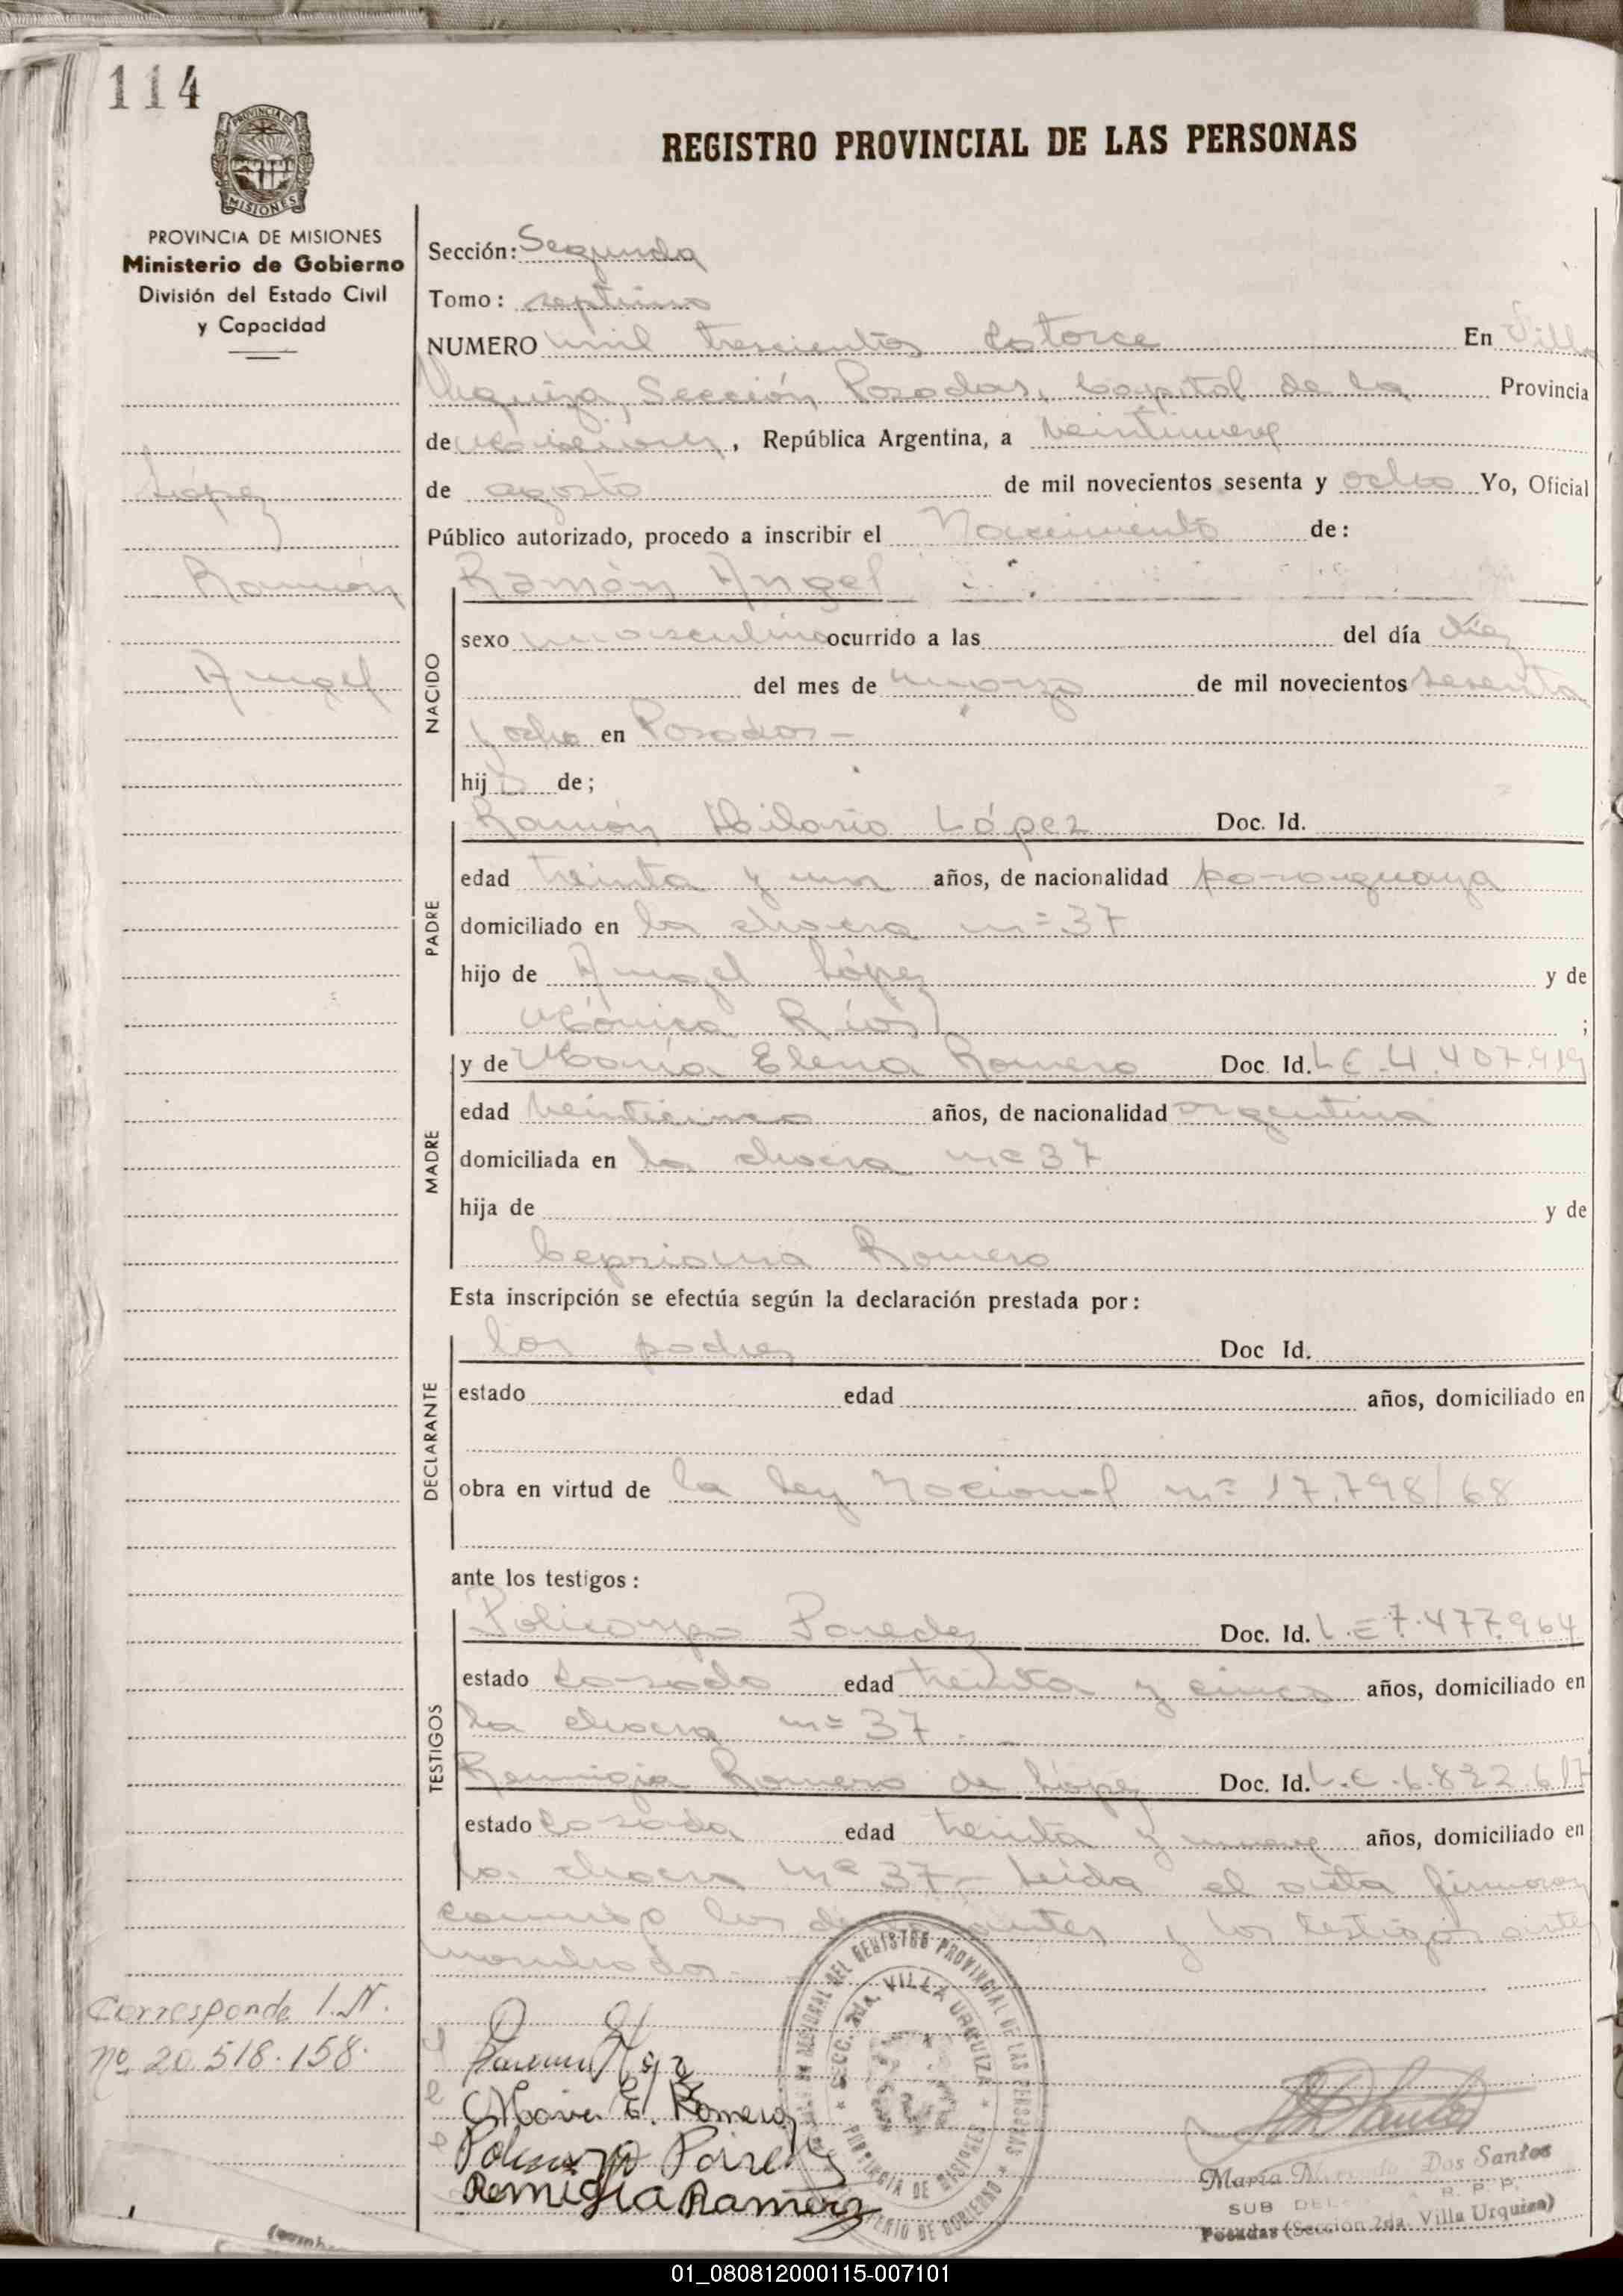 114
PROVINCIA DE
MISIONES
REGISTRO PROVINCIAL DE LAS PERSONAS
PROVINCIA DE MISIONES
Ministerio de Gobierno
División del Estado Civil
y Capacidad
López
Ramón
Angel
Sección: Segunda
Tomo: septimo
NUMERO mil trescientos catorce En Villa
Urquiza, Sección Posadas, Capital de la Provincia
de Misiones, República Argentina, a veintinueve
de agosto de mil novecientos sesenta y ocho Yo, Oficial
Público autorizado, procedo a inscribir el Nacimiento de:
NACIDO
Ramón Angel
sexo masculino ocurrido a las del día diez
del mes de marzo de mil novecientos sesenta
y ocho en Posadas -
hijo de;
PADRE
Ramón Hilario López Doc. Id.
edad treinta y un años, de nacionalidad paraguaya
domiciliado en la chacra nº 37
hijo de Angel López y de
Mónica Ríos ;
MADRE
y de María Elena Romero Doc. Id. L C. 4.407.919
edad veinticinco años, de nacionalidad argentina
domiciliada en la chacra nº 37
hija de y de
Cepriana Romero
Esta inscripción se efectúa según la declaración prestada por:
DECLARANTE
los padres Doc Id.
estado edad años, domiciliado en
obra en virtud de la ley Nacional nº 17.798/68
ante los testigos:
TESTIGOS
Policarpo Paredez Doc. Id. L.E 7.477.964
estado casado edad treinta y cinco años, domiciliado en
la chacra nº 37.
Remigia Romero de López Doc. Id. L.C.6.822.617
estado casada edad treinta y nueve años, domiciliado en
la chacra nº 37.- Leida el acta firmaron
conmigo los declarantes y los testigos antes
nombrados.
Corresponde I.N.
nº 20.518.158.
Maria E. Romero
Policarpo Paredez
Remigia Ramero
DEL REGISTRO PROVINCIAL DE LAS PERSONAS
SECC. 2da. VILLA URQUIZA
PROVINCIA DE MISIONES
MINISTERIO DE GOBIERNO
María Dos Santos
SUB R. P. P.
Posadas (Sección 2da. Villa Urquiza)
01_080812000115-007101